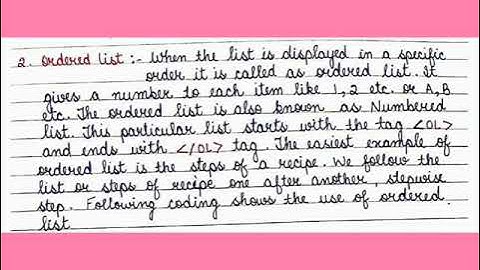 2. Ordered list :- When the list is displayed in a specific
order it is called as ordered list. It
gives a number to each item like 1, 2 etc. or A, B
etc. The ordered list is also known as Numbered
list. This particular list starts with the tag <OL>
and ends with </OL> tag. The easiest example of
ordered list is the steps of a recipe. We follow the
list or steps of recipe one after another, stepwise
step. Following coding shows the use of ordered
list